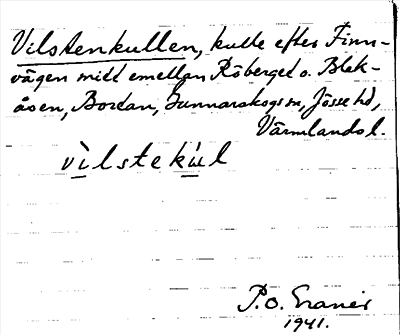 Vilstenkullen, kulle efter Finn-
vägen mitt emellan Röberget o. Blek-
åsen, Bordan, Gunnarskogs sn, Jösse hd,
Värmlands l.
vilstekul
P.O. Granér
1941.